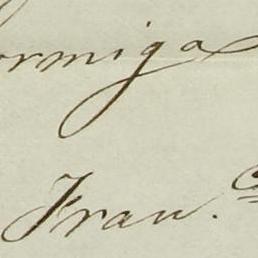 ormiga
Fran.